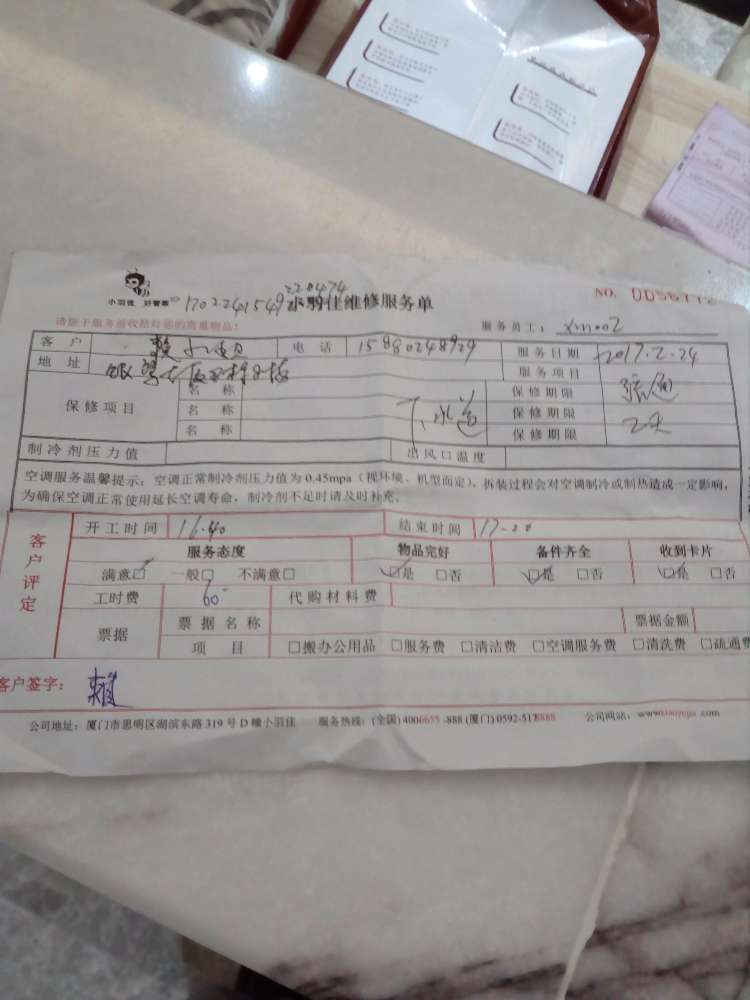 小羽佳 好管家
1702241549
220474
小羽佳维修服务单
NO. 0056772
请您于服务前收拾好您的贵重物品!
服务员工: xm002
客户 赖 电话 15880248924 服务日期 2017.2.24
地址 服务项目
保修项目 名称 下水道 保修期限
名称 保修期限
名称 保修期限 2天
制冷剂压力值 出风口温度
空调服务温馨提示:空调正常制冷剂压力值为 0.45mpa(视环境、机型而定),拆装过程会对空调制冷或制热造成一定影响,
为确保空调正常使用延长空调寿命,制冷剂不足时请及时补充。
客户评定
开工时间 16.40 结束时间 17.20
服务态度 物品完好 备件齐全 收到卡片
满意□ 一般□ 不满意□ □是 □否 □是 □否 □是 □否
工时费 60 代购材料费
票据 票据名称 票据金额
项目 □搬办公用品 □服务费 □清洁费 □空调服务费 □清洗费 □疏通费
客户签字: 赖
公司地址:厦门市思明区湖滨东路 319 号 D 幢小羽佳 服务热线:(全国) 4006655-888 (厦门) 0592-5178888 公司网站: